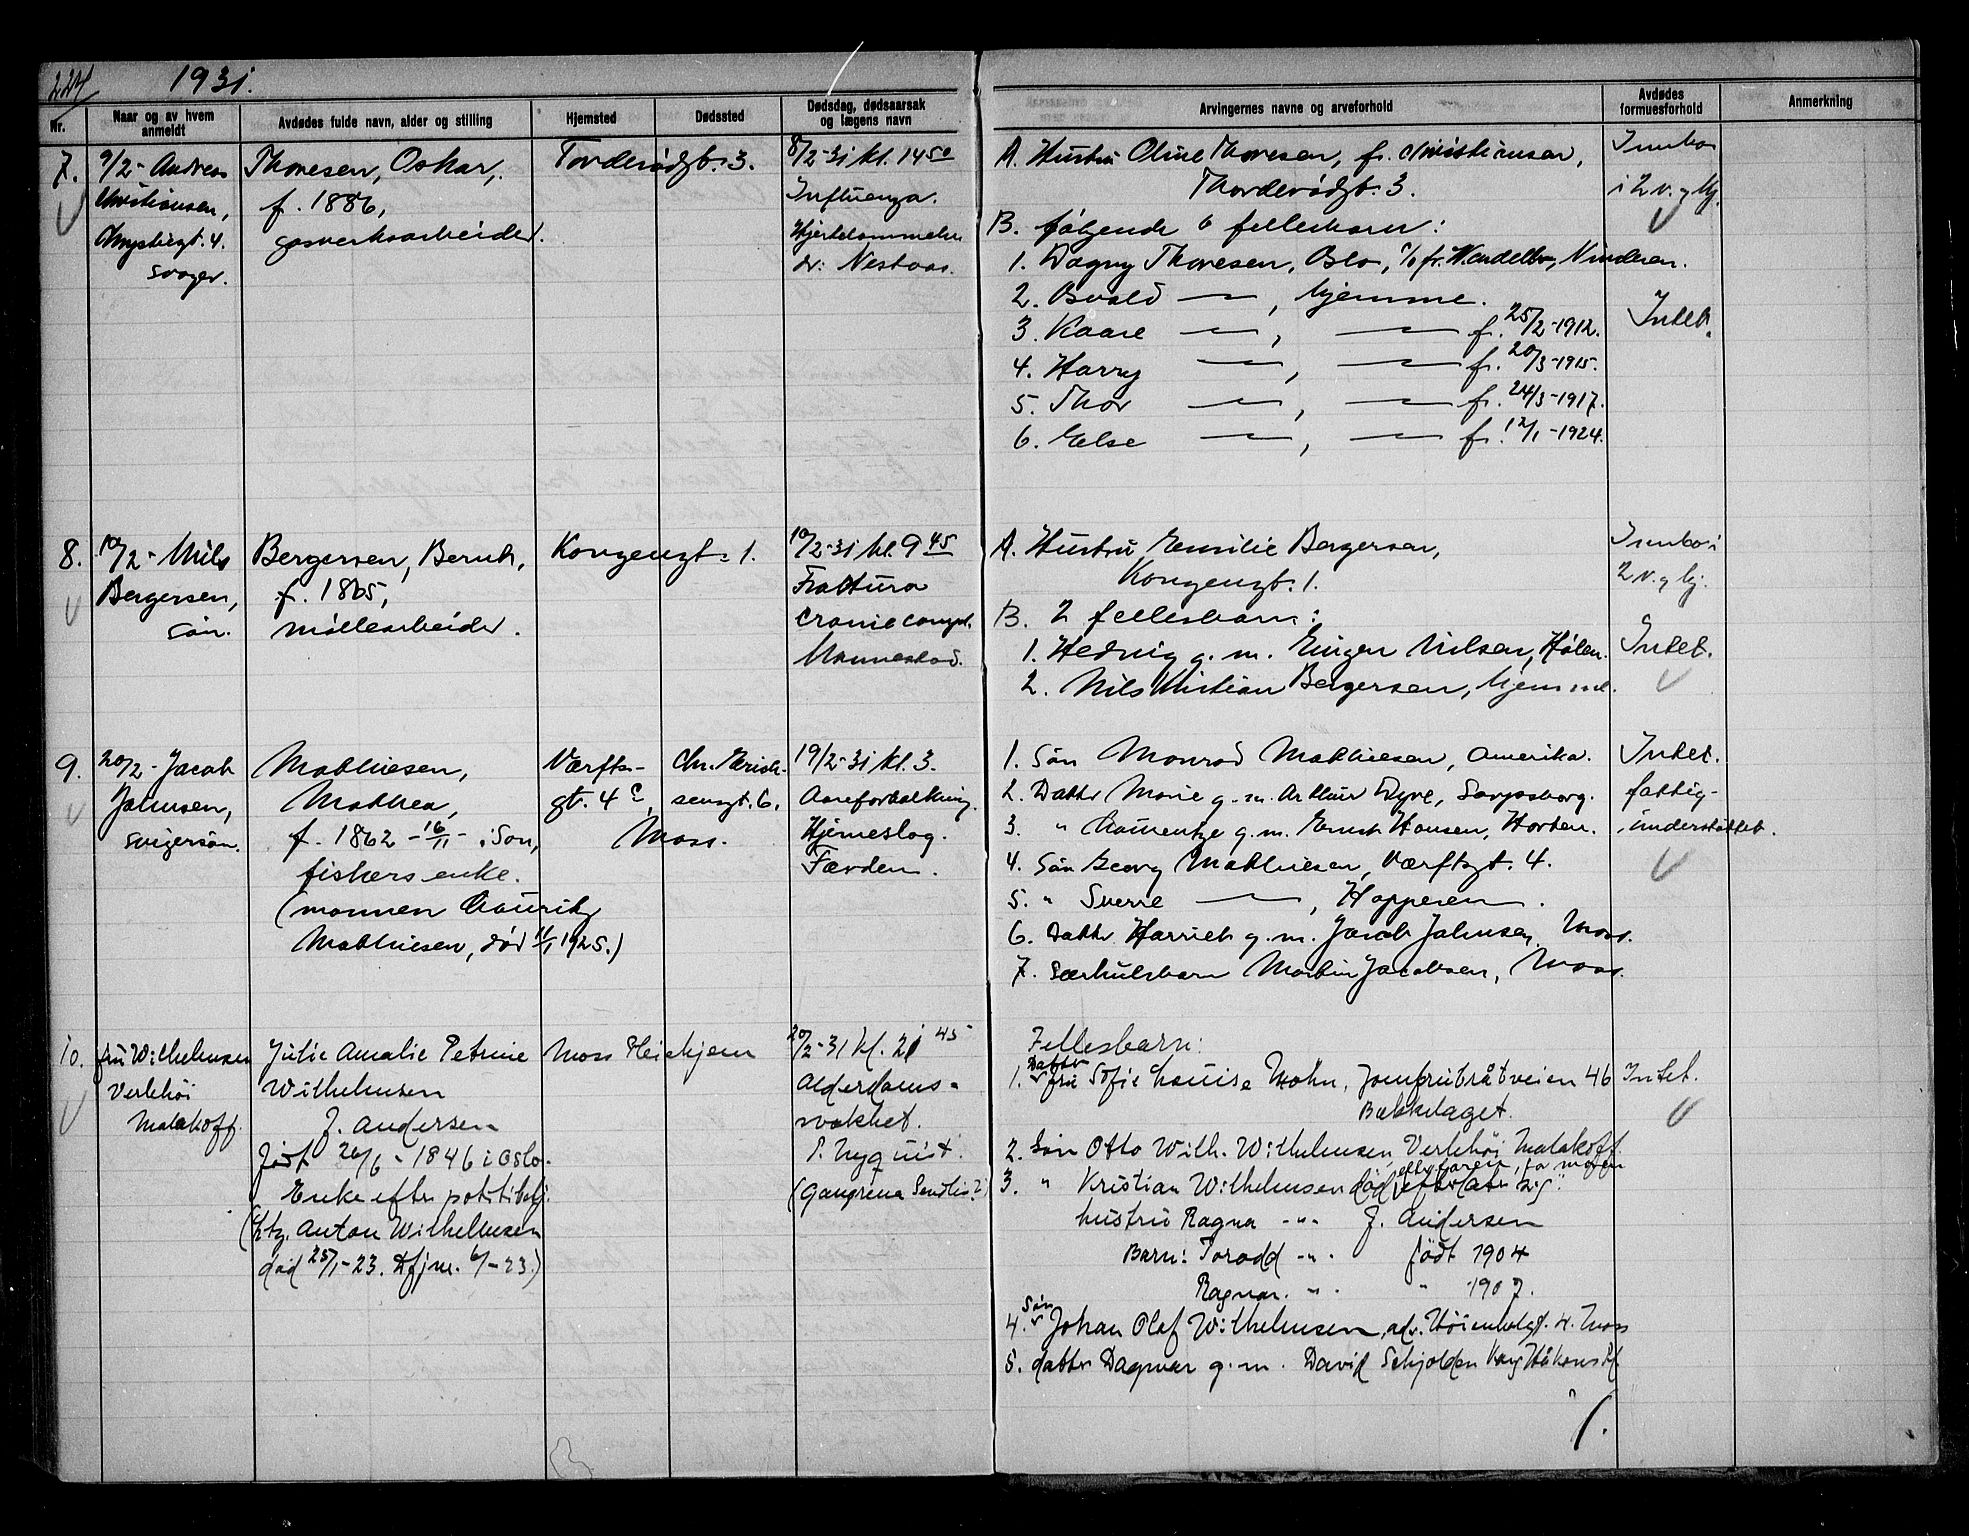 224
1931.
Nr.
Naar og av hvem anmeldt
Avdødes fulde navn, alder og stilling
Hjemsted
Dødssted
Dødsdag, dødsaarsak og lægens navn
Arvingernes navne og arveforhold
Avdødes formuesforhold
Anmerkning
7.
9/2 - Andreas
Christiansen,
svoger.
Thoresen, Oskar,
f. 1886,
gasverksarbeider.
Torderødgt. 3.
8/2-31 kl. 14 50
Influenza.
dr. Nestaas.
A. Hustru Oline Thoresen, f. Christiansen,
Thorderødgt. 3.
B. følgende 6 fellesbarn:
1. Dagny Thoresen, Oslo, c/o fr. Wendelbo, Vinderen.
2. Osvald — , hjemme.
3. Kaare — , — f. 25/2-1912.
4. Harry — , — f. 20/3-1915.
5. Thor — , — f. 24/3-1917.
6. Else — , — f. 12/1-1924.
Innbo
i 2 v. og kj.
Intet.
8.
10/2 - Nils
Bergersen,
sön.
Bergersen, Bernh,
f. 1865,
möllearbeider.
Kongensgt. 1.
10/2-31 kl. 9 45
Fraktura
cranie compl.
Mannestad.
A. Hustru Emilie Bergersen,
Kongensgt. 1.
B. 2 fellesbarn:
1. Hedvig g. m. Nilsen, Hølen.
2. Nils Kristian Bergersen, hjemme.
Innbo i
2 v. og kj.
Intet.
9.
20/2 - Jacob
Johnsen,
svigersön.
Mathiesen,
Mathea,
f. 1862 - 16/11 - i Son,
fiskers enke.
(mannen Lauritz
Mathiesen, död 11/1 1925.)
Værfts-
gt. 4 c,
Moss.
Chr. Erich-
sensgt. 6,
19/2-31 kl. 3.
Aareforkalkning.
Hjerneslag.
Færden.
1. Sön Monrad Mathiesen, Amerika.
2. Dattr Marie g. m. Arthur Dyre, Sarpsborg.
3. " Laurentze g. m. Ernst Hansen, Horten.
4. Sön Georg Mathiesen, Værftsgt. 4.
5. " Sverre — , Hoppern.
6. Dattr Harriet g. m. Jacob Johnsen, Moss.
7. Særkulsbarn Martin Jacobsen, Moss.
Intet.
fattig-
understøttet.
10.
fru Wilhelmsen
Verlehöi
Malakoff.
Julie Amalie Petrine
Wilhelmsen
f. Andersen
født 26/6 - 1846 i Oslo.
Enke efter
Anton Wilhelmsen
död 25/1-23.
Moss Pleiehjem
20/2-31 kl. 21 45
Alderdoms-
svakhet.
P. Nyquist.
(Gangrena Senilis?)
Fellesbarn:
Datter
1. fru Sofie Louise Mohn, Jomfrubråtveien 46
Bækkelaget.
2. Sön Otto Wilh. Wilhelmsen, Verlehöi Malakoff.
3. " Kristian Wilhelmsen
hustru Ragna -"- f. Andersen
Barn: Torodd -"- født 1904
Ragnar. -"- " 1907.
Sön
4. Johan Olaf Wilhelmsen, Moss
5. datter Dagmar g. m. David Schjolden
Intet.